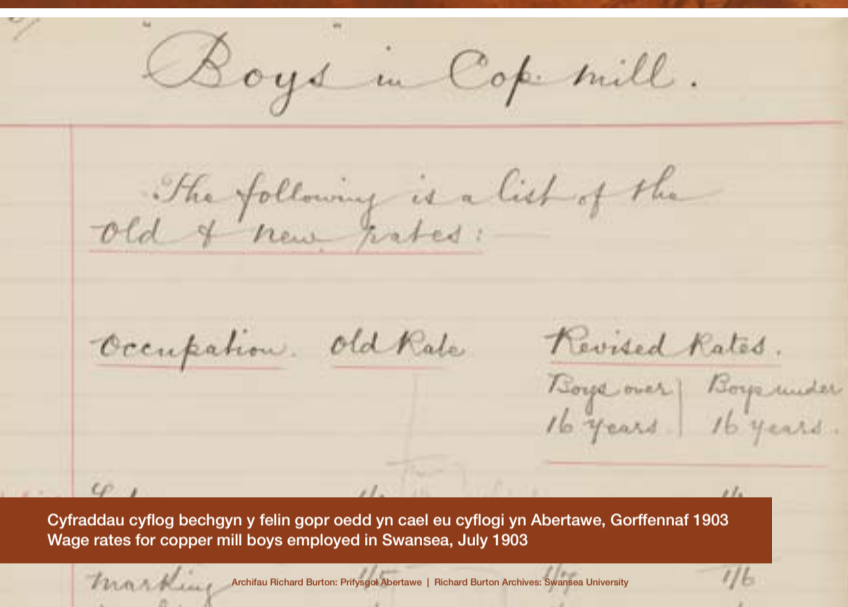 "Boys" in Cop. mill.
The following is a list of the
old & new rates:
Occupation. Old Rate Revised Rates.
Boys over Boys under
16 years. 16 years.
Cyfraddau cyflog bechgyn y felin gopr oedd yn cael eu cyflogi yn Abertawe, Gorffennaf 1903
Wage rates for copper mill boys employed in Swansea, July 1903
Marking 1/6
Archifau Richard Burton: Prifysgol Abertawe | Richard Burton Archives: Swansea University